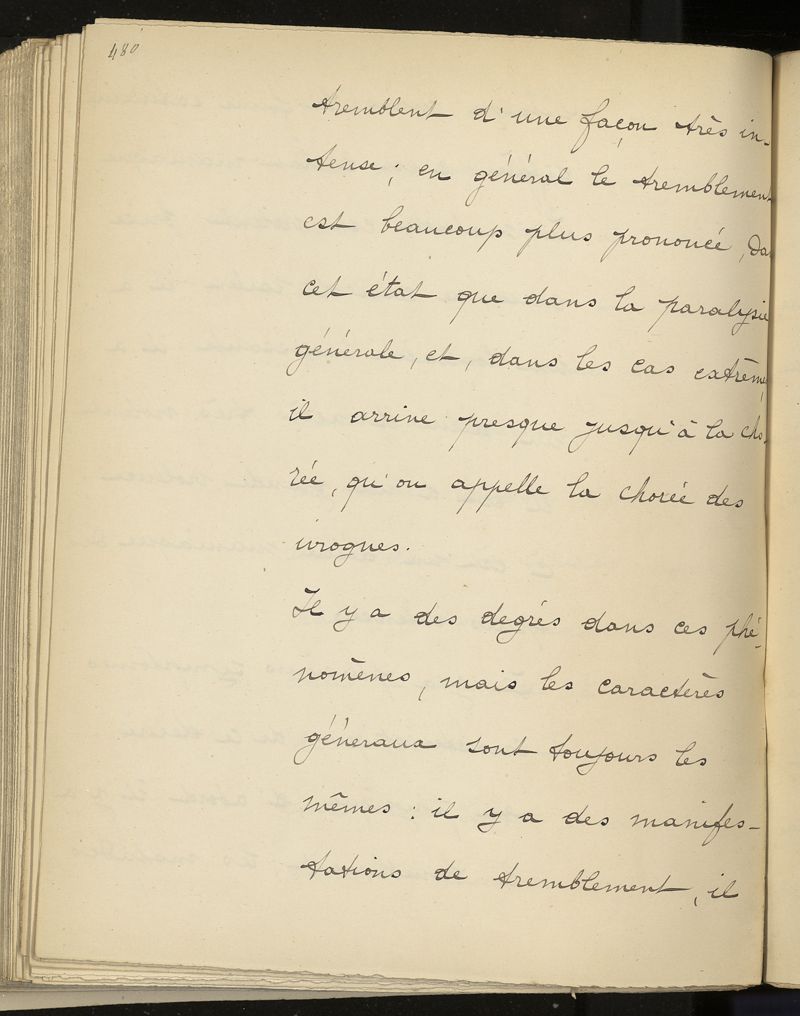 480
tremblent d'une façon très in-
tense ; en général le tremblement
est beaucoup plus prononcée, da
cet état que dans la paralysie
générale, et, dans les cas extrême
il arrive presque jusqu'à la cho-
rée, qu'on appelle la chorée des
ivrognes.
Il y a des degrés dans ces phé-
nomènes, mais les caractères
généraux sont toujours les
mêmes : il y a des manifes-
tations de tremblement, il